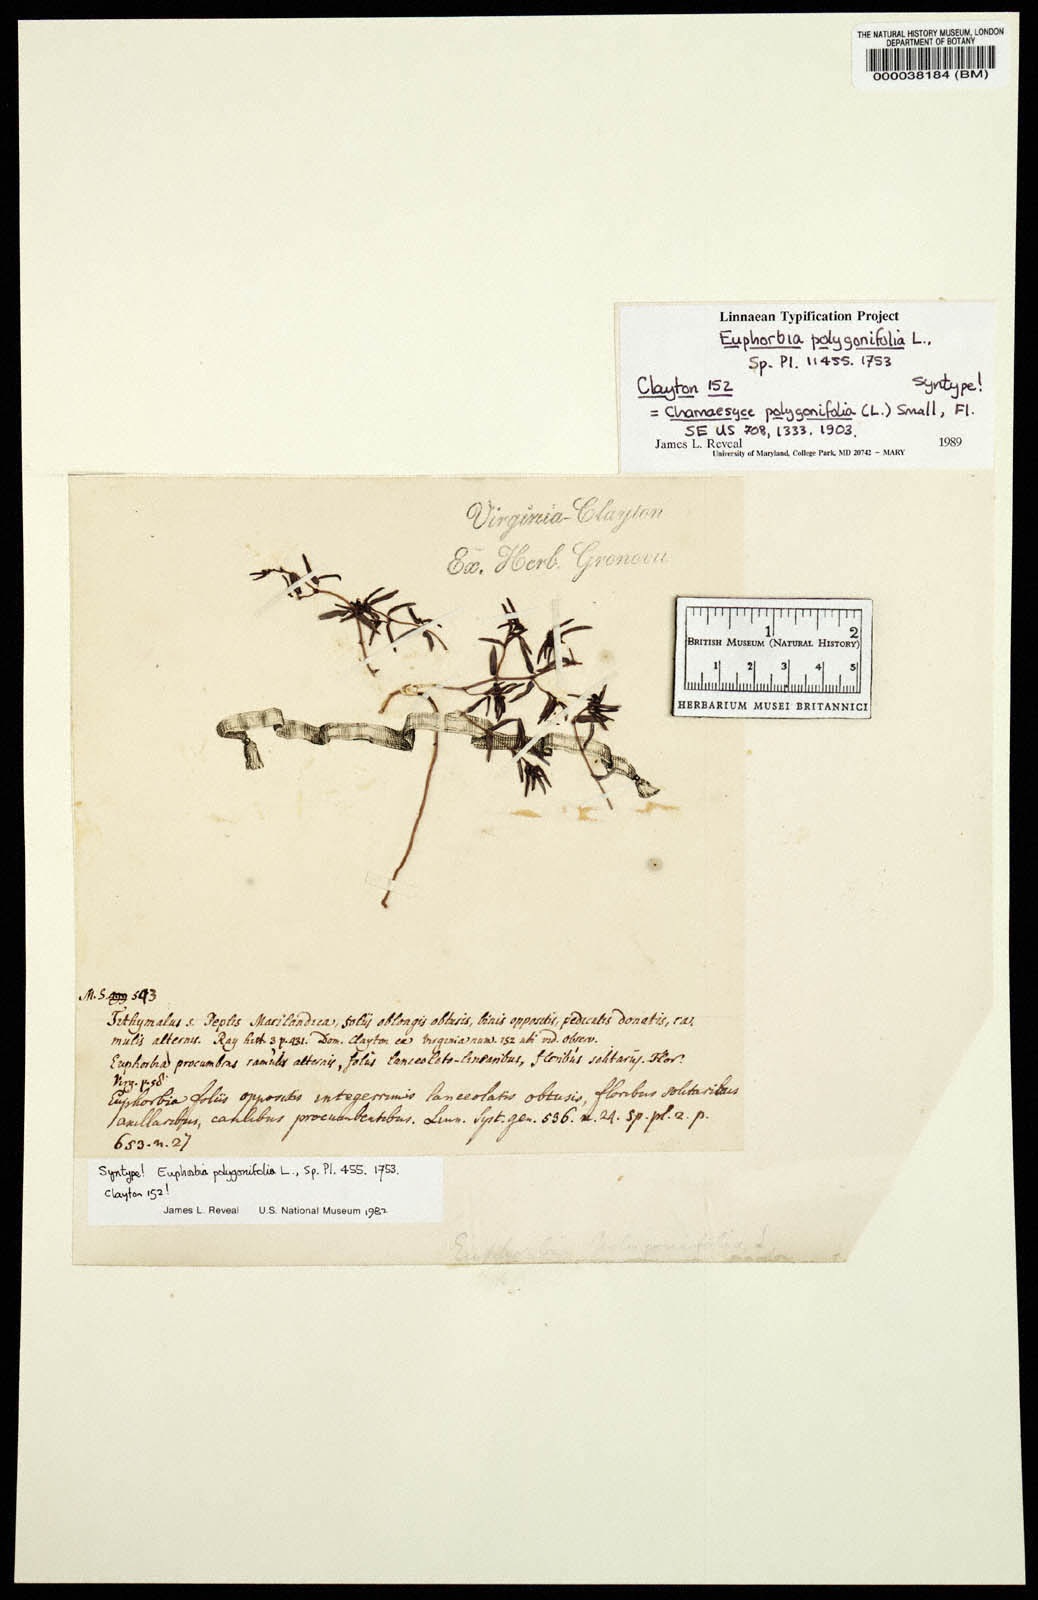 THE NATURAL HISTORY MUSEUM, LONDON
DEPARTMENT OF BOTANY
000038184 (BM)
Linnaean Typification Project
Euphorbia polygonifolia L.,
Sp. Pl. 11455. 1753
Clayton 152 Syntype!
= Chamaesyce polygonifolia (L.) Small, Fl.
SE US 708, 1333. 1903.
James L. Reveal 1989
University of Maryland, College Park, MD 20742 – MARY
Virginia-Clayton
Ex. Herb. Gronovii
1 2
BRITISH MUSEUM (NATURAL HISTORY)
1 2 3 4 5
HERBARIUM MUSEI BRITANNICI
M.S. 593
Tithymalus s. Peplis Marilandica, foliis oblongis obtusis, binis oppositis, pediculis donatis, ra,
mulis alternis. Ray hist. 3 p. 431. Dom. Clayton ex Virginia num. 152 ubi vid. observ.
Euphorbia procumbens ramulis alternis, foliis lanceolato-linearibus, floribus solitariis. Flor.
Virg. p. 58.
Euphorbia foliis oppositis integerrimis lanceolatis obtusis, floribus solitariibus
axillaribus, caulibus procumbentibus. Linn. Syst. gen. 536. n. 24. Sp. pl. 2. p.
653. n. 27
Syntype! Euphorbia polygonifolia L., Sp. Pl. 455. 1753.
Clayton 152!
James L. Reveal U.S. National Museum 1982
Euphorbia polygonifolia L